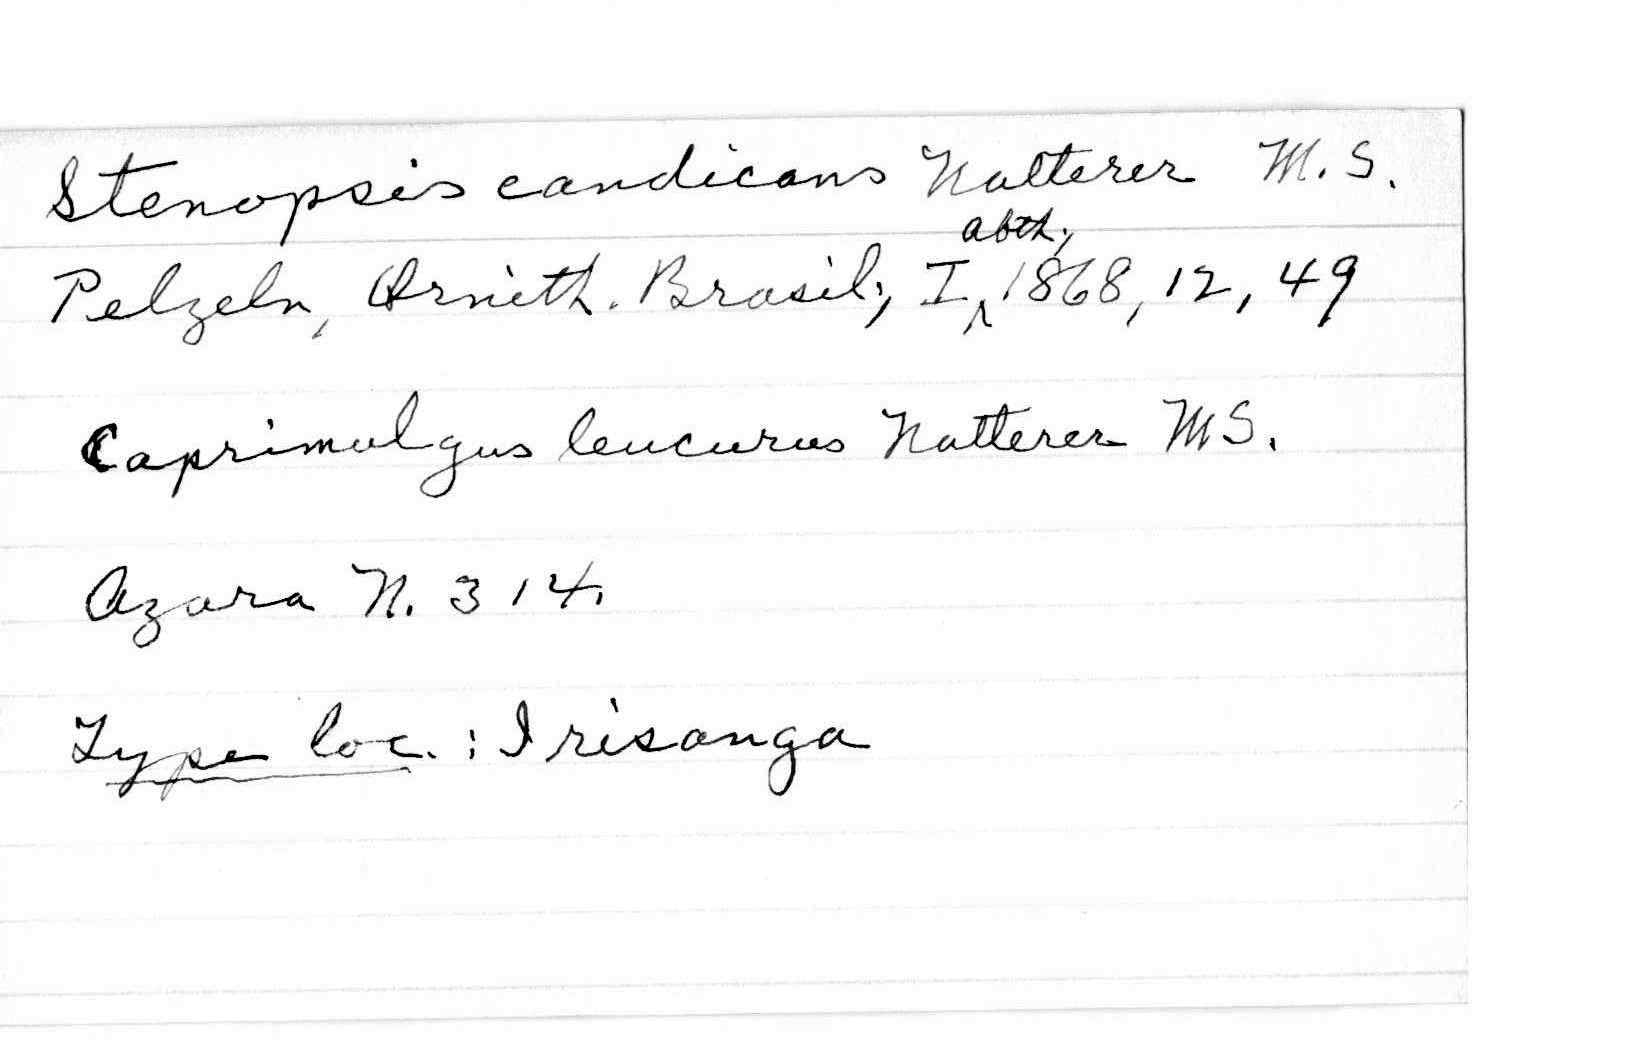 Stenopsis candicans Natterer M.S.
Pelzeln, Ornith. Brasil., I abth., 1868, 12, 49
Caprimulgus leucurus Natterer MS.
Azara N. 314.
Type loc. : Irisanga